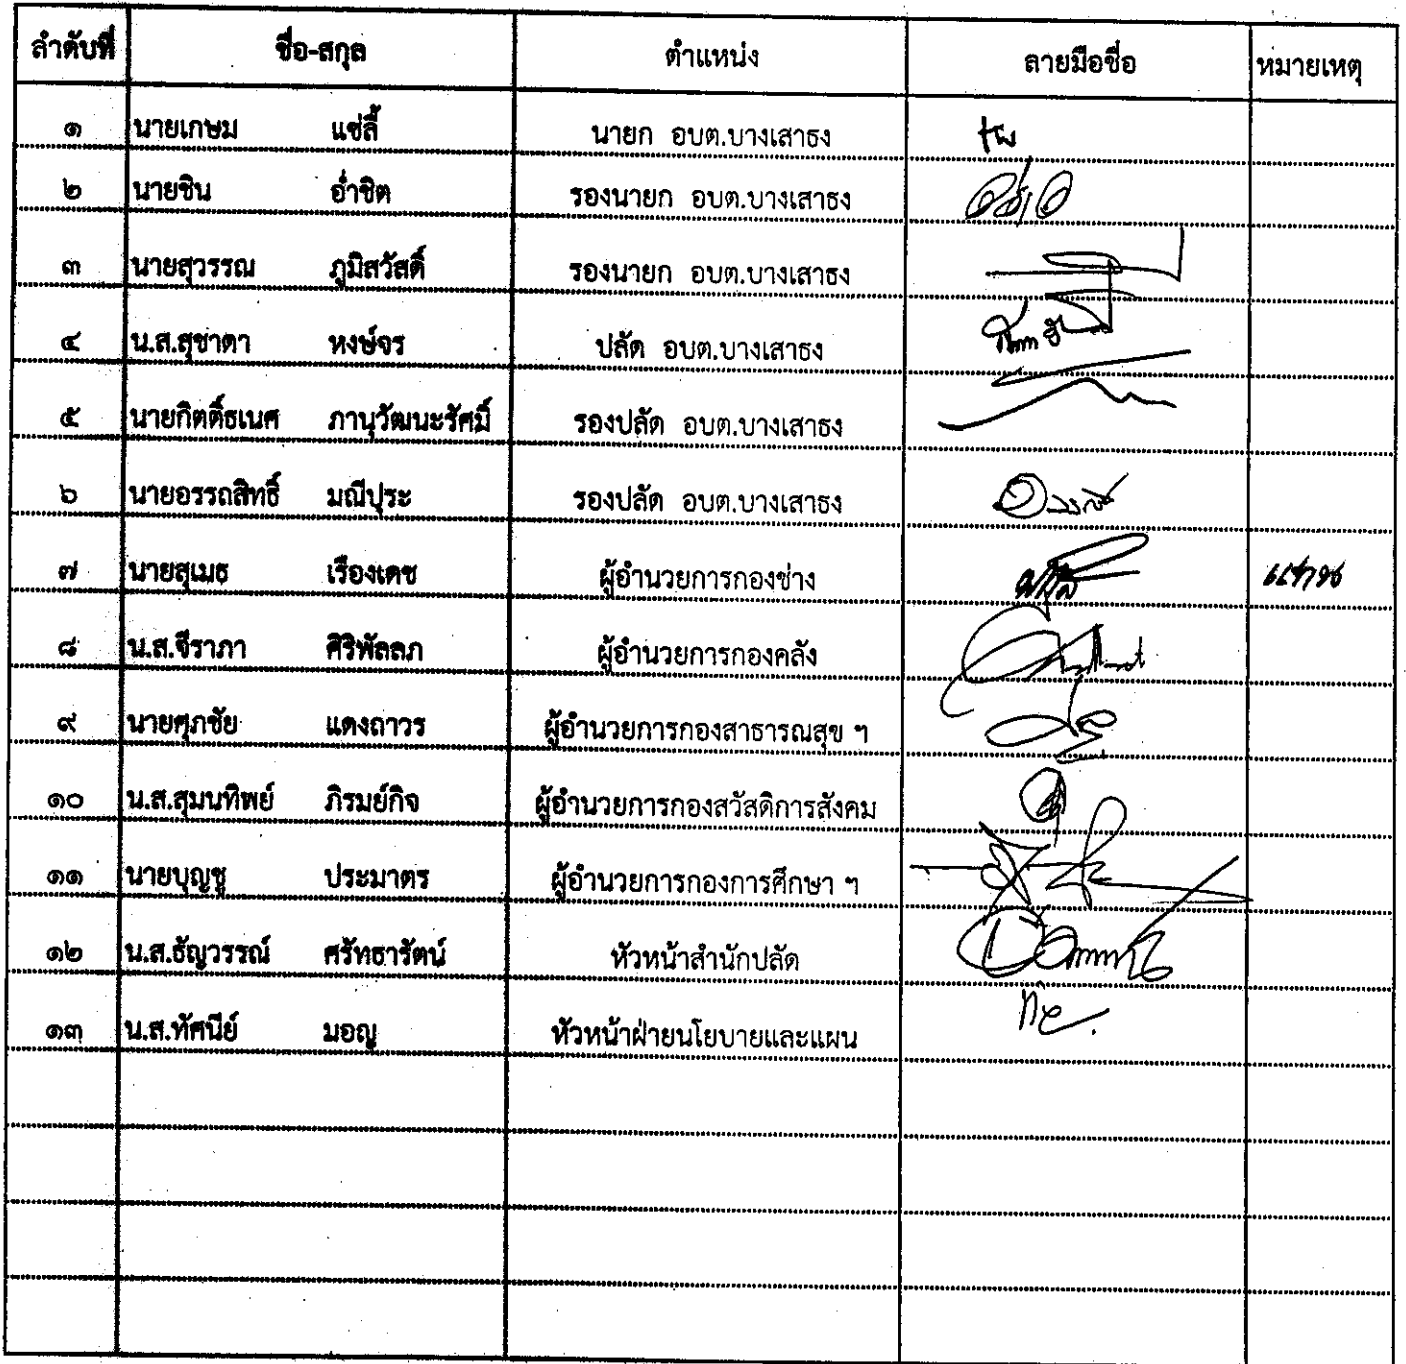 ลำดับที่ ชื่อ-สกุล ตำแหน่ง ลายมือชื่อ หมายเหตุ
๑ นายเกษม แซ่ลี้ นายก อบต.บางเสาธง
๒ นายชิน อ่ำชิต รองนายก อบต.บางเสาธง
๓ นายสุวรรณ ภูมิสวัสดิ์ รองนายก อบต.บางเสาธง
๔ น.ส.สุชาดา หงษ์จร ปลัด อบต.บางเสาธง
๕ นายกิตติ์ธเนศ ภานุวัฒนะรัศมิ์ รองปลัด อบต.บางเสาธง
๖ นายอรรถสิทธิ์ มณีปุระ รองปลัด อบต.บางเสาธง
๗ นายสุเมธ เรืองเดช ผู้อำนวยการกองช่าง
๘ น.ส.จีราภา ศิริพัลลภ ผู้อำนวยการกองคลัง
๙ นายศุภชัย แดงถาวร ผู้อำนวยการกองสาธารณสุข ฯ
๑๐ น.ส.สุมนทิพย์ ภิรมย์กิจ ผู้อำนวยการกองสวัสดิการสังคม
๑๑ นายบุญชู ประมาตร ผู้อำนวยการกองการศึกษา ฯ
๑๒ น.ส.ธัญวรรณ์ ศรัทธารัตน์ หัวหน้าสำนักปลัด
๑๓ น.ส.ทัศนีย์ มอญ หัวหน้าฝ่ายนโยบายและแผน